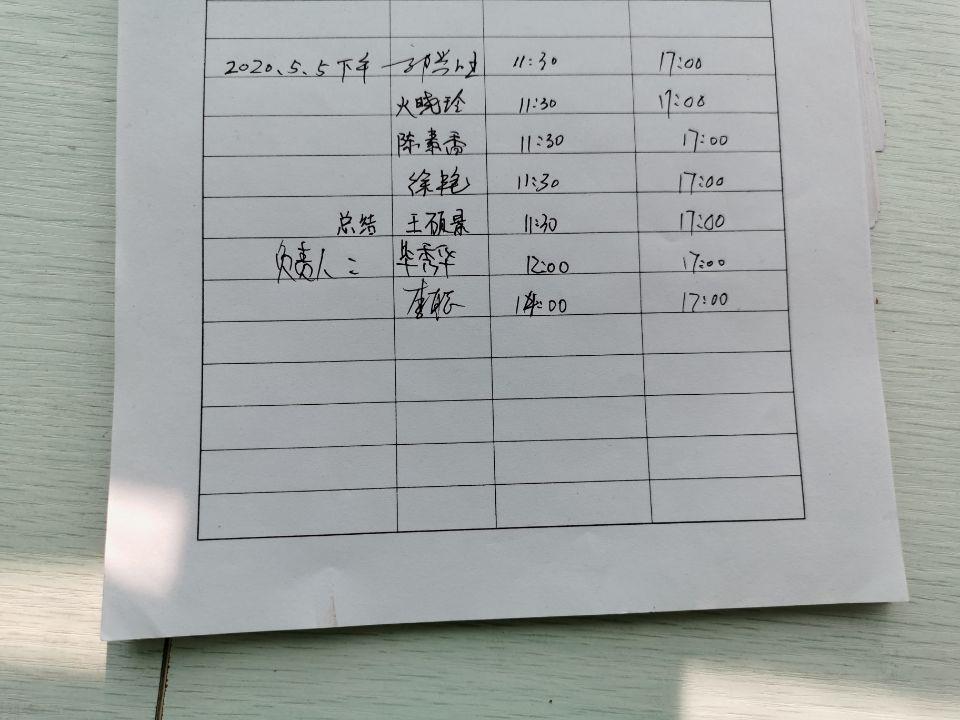 2020.5.5下午 11:30 17:00
火晓玲 11:30 17:00
陈素香 11:30 17:00
徐艳 11:30 17:00
总结 王硕景 11:30 17:00
负责人: 毕秀华 12:00 17:00
14:00 17:00